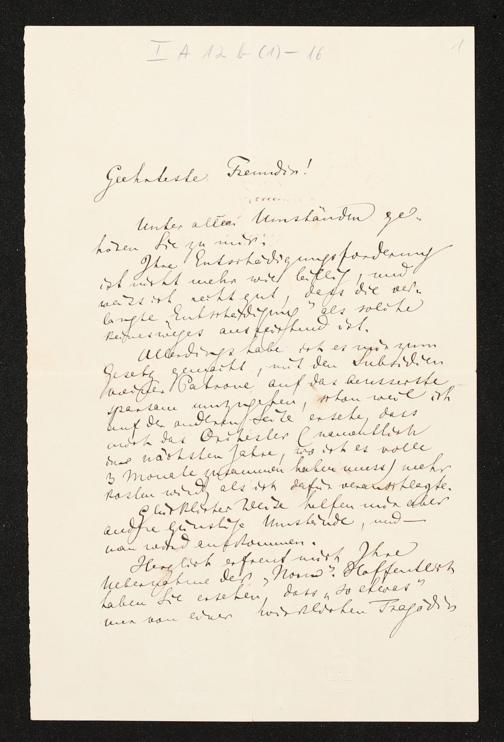 I A 12 b (1) - 16
1
Geehrteste Freundin!
Unter allen Umständen ge-
hören Sie zu mir.
Ihre Entschädigungsforderung
ist nicht mehr wie billig, und
weiss ich recht gut, dass die ver-
langte „Entschädigung" als solche
keineswegs ausreichend ist.
Allerdings habe ich es mir zum
Gesetz gemacht, mit den Subsidien
meiner Patrone auf das äusserste
sparsam umzugehen, schon weil ich
auf der anderen Seite ersehe, dass
mich das Orchester (namentlich
im nächsten Jahre, wo ich es volle
3 Monate zusammen haben muss) mehr
kosten wird, als ich dafür veranschlagte.
Glücklicher Weise helfen mir aber
andre günstige Umstände, und —
man wird auskommen.
Herzlich erfreut mich Ihre
Uebernahme der „Norn". Hoffentlich
haben Sie ersehen, dass „so etwas"
nur von einer wirklichen Tragödin